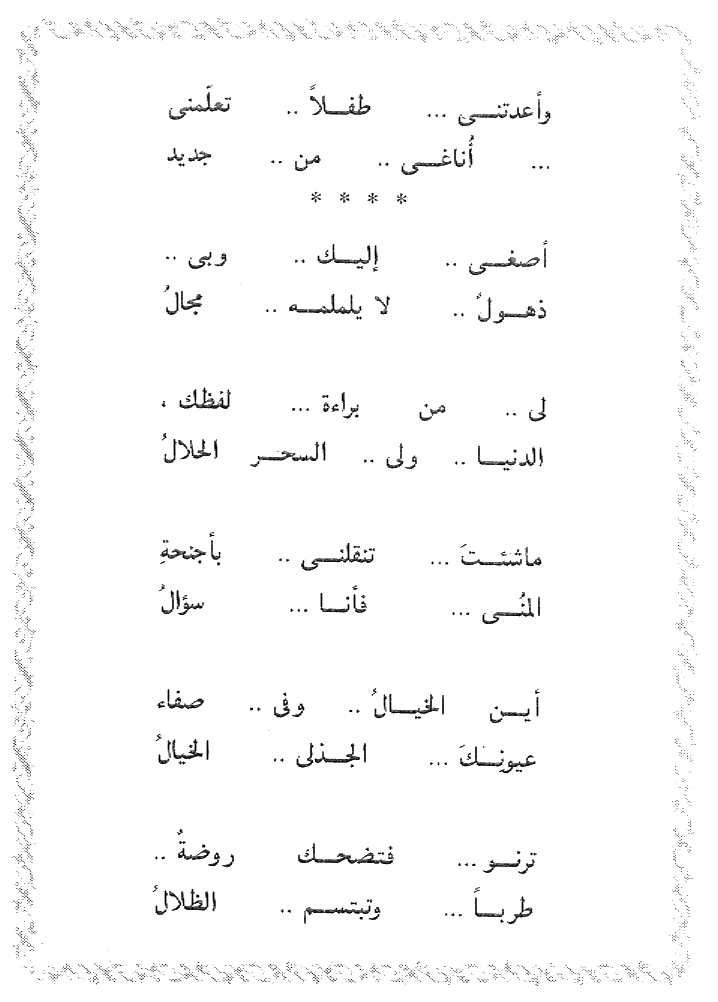 وأعدتنــى ... طفــلاً .. تعلّمنى
... أُناغــى .. من .. جديد
* * * *
أصغــى .. إليــك .. وبى ..
ذهــولُ .. لا يلملمــه .. مجالُ
لى .. من براءة ... لفظك ،
الدنيــا .. ولى .. السحــر الحلالُ
ماشئــتَ ... تنقلنــى .. بأجنحةِ
المنُــى ... فأنــا ... سؤالُ
أيــن الخيــالُ .. وفى .. صفاء
عيونِــكَ ... الجــذلى .. الخيالُ
ترنــو ... فتضحــك روضةٌ ..
طربــاً ... وتبتســم .. الظلالُ